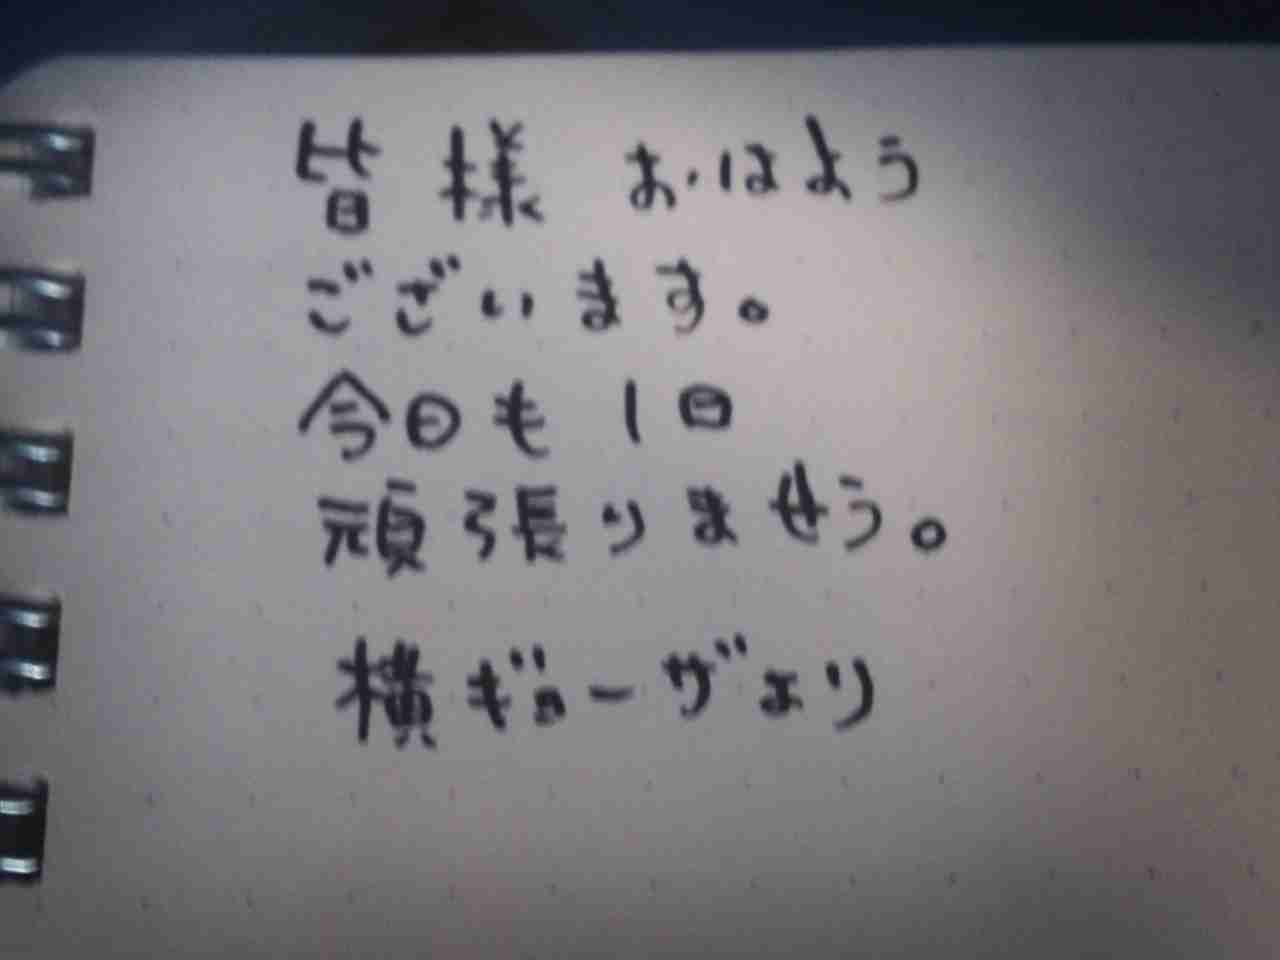 皆様 おはよう
ございます。
今日も1日
頑張りませう。
横ギョーザより